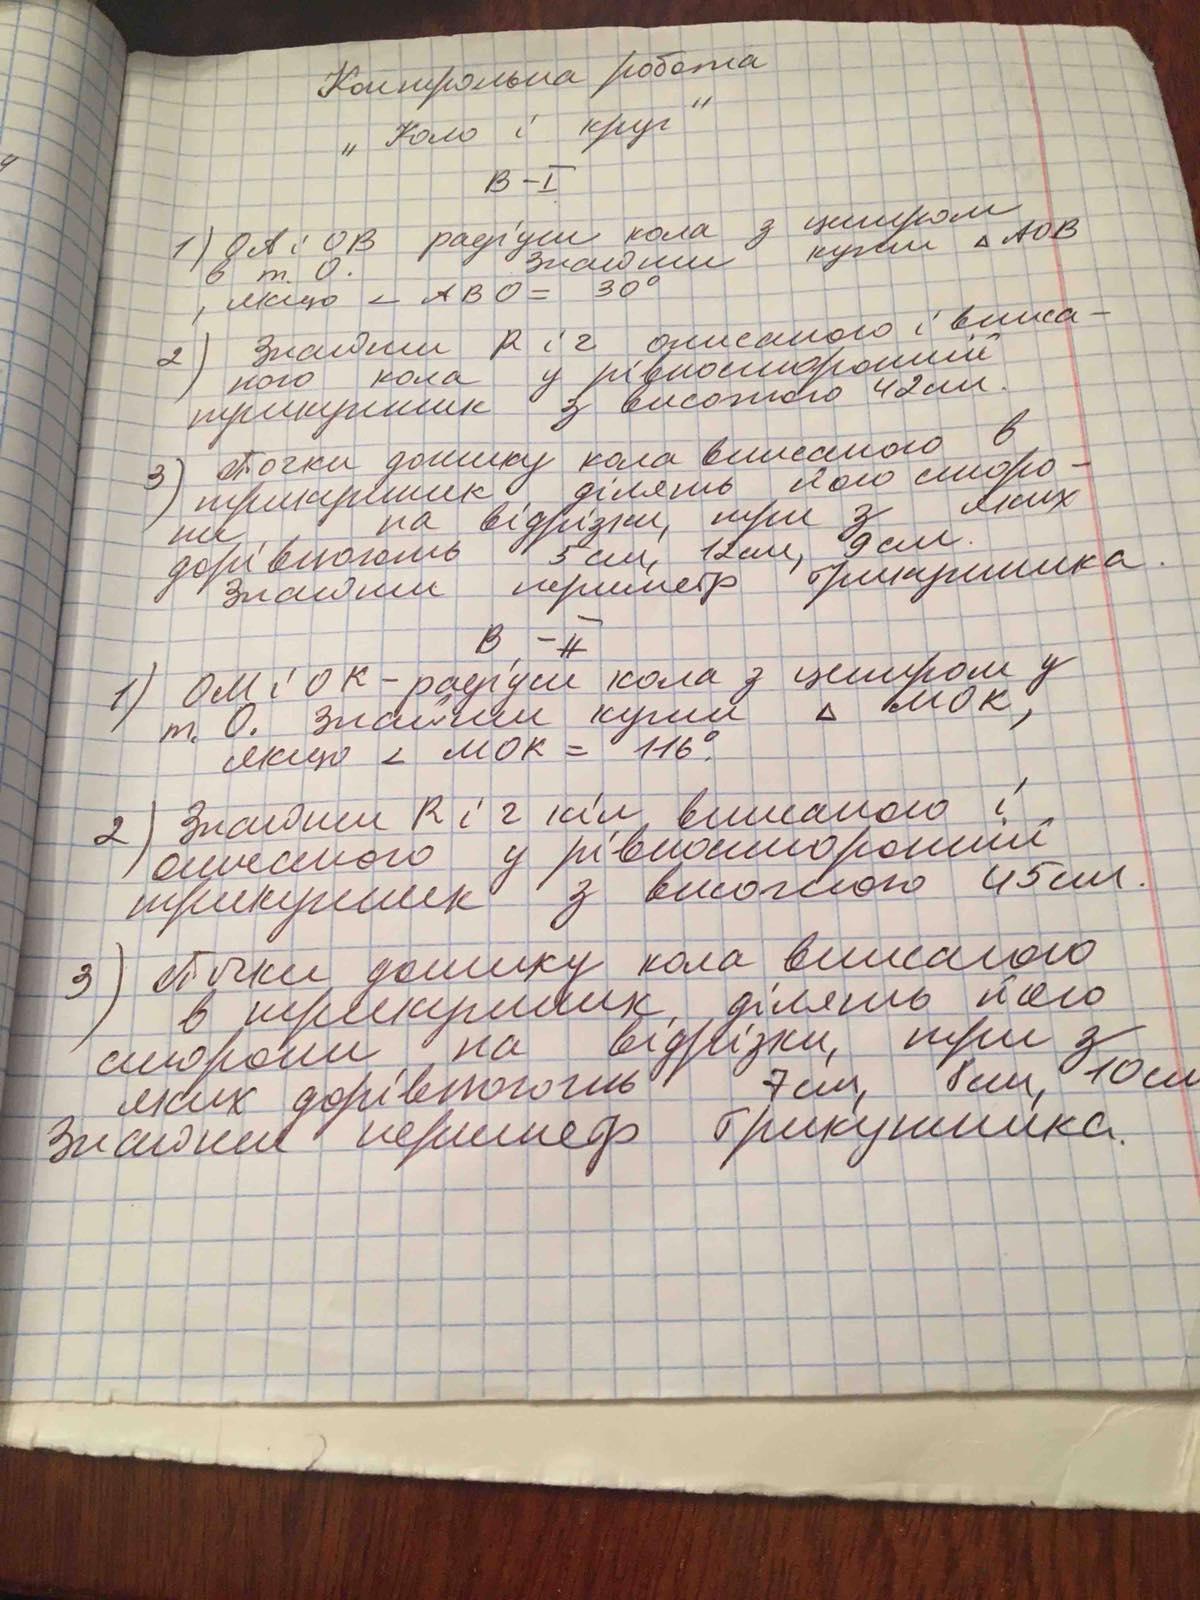 Контрольна робота
„Коло і круг"
В-I
1) ОА і ОВ радіуси кола з центром
в т. О. Знайти кути △ АОВ
, якщо ∠ АВО = 30°
2) Знайти R і r описаного і вписа-
ного кола у рівносторонній
трикутник з висотою 42см.
3) Точки дотику кола вписаного в
трикутник, ділять його сторо-
ни на відрізки, три з яких
дорівнюють 5см, 12см, 9см.
Знайти периметр трикутника.
В-II
1) ОМ і ОК - радіуси кола з центром у
т. О. Знайти кути △ МОК,
якщо ∠ МОК = 116°.
2) Знайти R і r кіл, вписаного і
описаного у рівносторонній
трикутник з висотою 45см.
3) Точки дотику кола вписаного
в трикутник, ділять його
сторони на відрізки, три з
яких дорівнюють 7см, 8см, 10см
Знайти периметр трикутника.